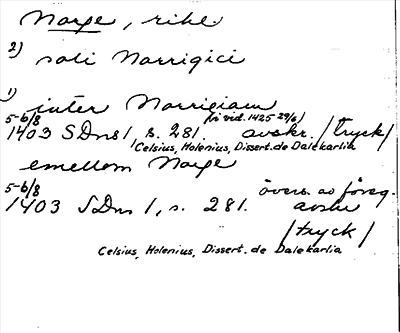 Norge, rike
2) soli Norrigici
1) inter Norrigiam
5-6/8 (vi vid. 1425 29/6)
1403 SDns 1, s. 281. avskr. /tryck/
Celsius, Holenius, Dissert. de Dalekarlia
emellom Norge
5-6/8 övers. av föreg.
1403 SDns 1, s. 281. avskr
/tryck/
Celsius, Holenius, Dissert. de Dalekarlia